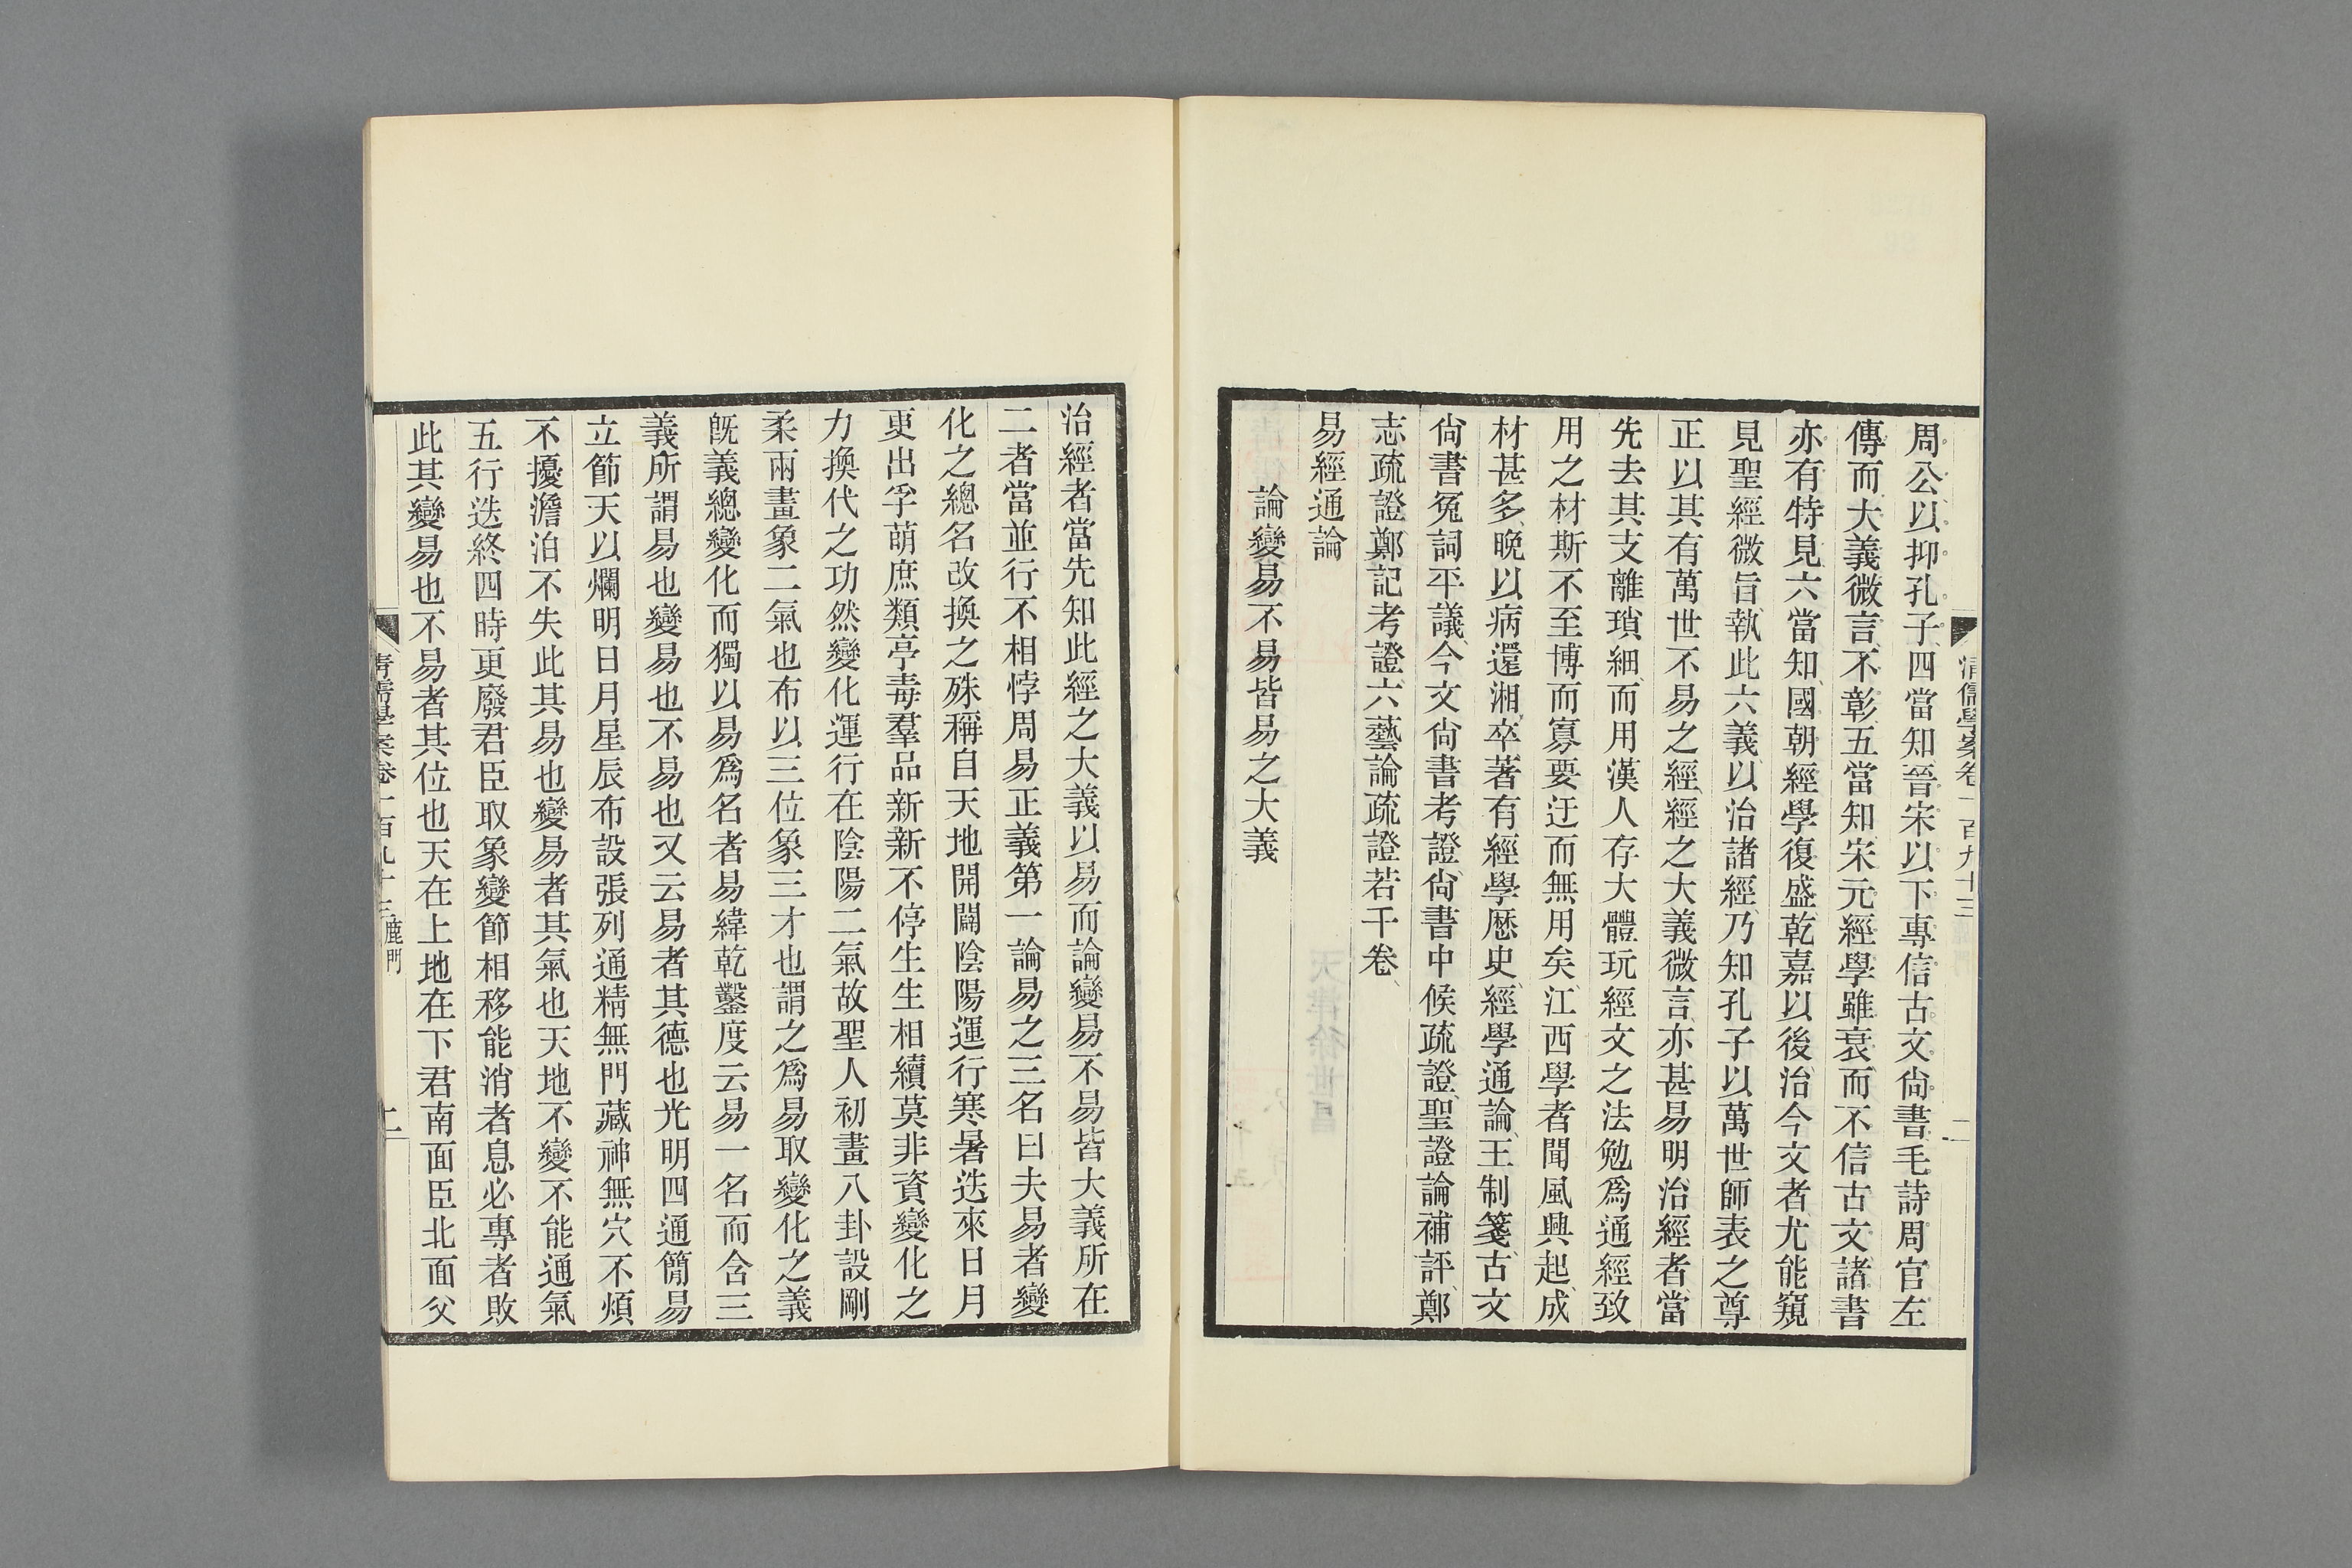 周公以抑孔子四當知晉宋以下專信古文尚書毛詩周官左
傳而大義微言不彰五當知宋元經學雖衰而不信古文諸書
亦有特見六當知國朝經學復盛乾嘉以後治今文者尤能窺
見聖經微旨執此六義以治諸經乃知孔子以萬世師表之尊
正以其有萬世不易之經經之大義微言亦甚易明治經者當
先去其支離瑣細而用漢人存大體玩經文之法勉爲通經致
用之材斯不至博而寡要迂而無用矣江西學者聞風興起成
材甚多晚以病還湘卒著有經學歷史經學通論王制箋古文
尚書冤詞平議今文尚書考證尚書中候疏證聖證論補評鄭
志疏證鄭記考證六藝論疏證若干卷
易經通論
論變易不易皆易之大義
清儒學案卷一百九十三
二
治經者當先知此經之大義以易而論變易不易皆大義所在
二者當並行不相悖周易正義第一論易之三名曰夫易者變
化之總名改換之殊稱自天地開闢陰陽運行寒暑迭來日月
更出孚萌庶類亭毒羣品新新不停生生相續莫非資變化之
力換代之功然變化運行在陰陽二氣故聖人初畫八卦設剛
柔兩畫象二氣也布以三位象三才也謂之爲易取變化之義
旣義總變化而獨以易爲名者易緯乾鑿度云易一名而含三
義所謂易也變易也不易也又云易者其德也光明四通簡易
立節天以爛明日月星辰布設張列通精無門藏神無穴不煩
不擾澹泊不失此其易也變易者其氣也天地不變不能通氣
五行迭終四時更廢君臣取象變節相移能消者息必專者敗
此其變易也不易者其位也天在上地在下君南面臣北面父
清儒學案卷一百九十三 鹿門